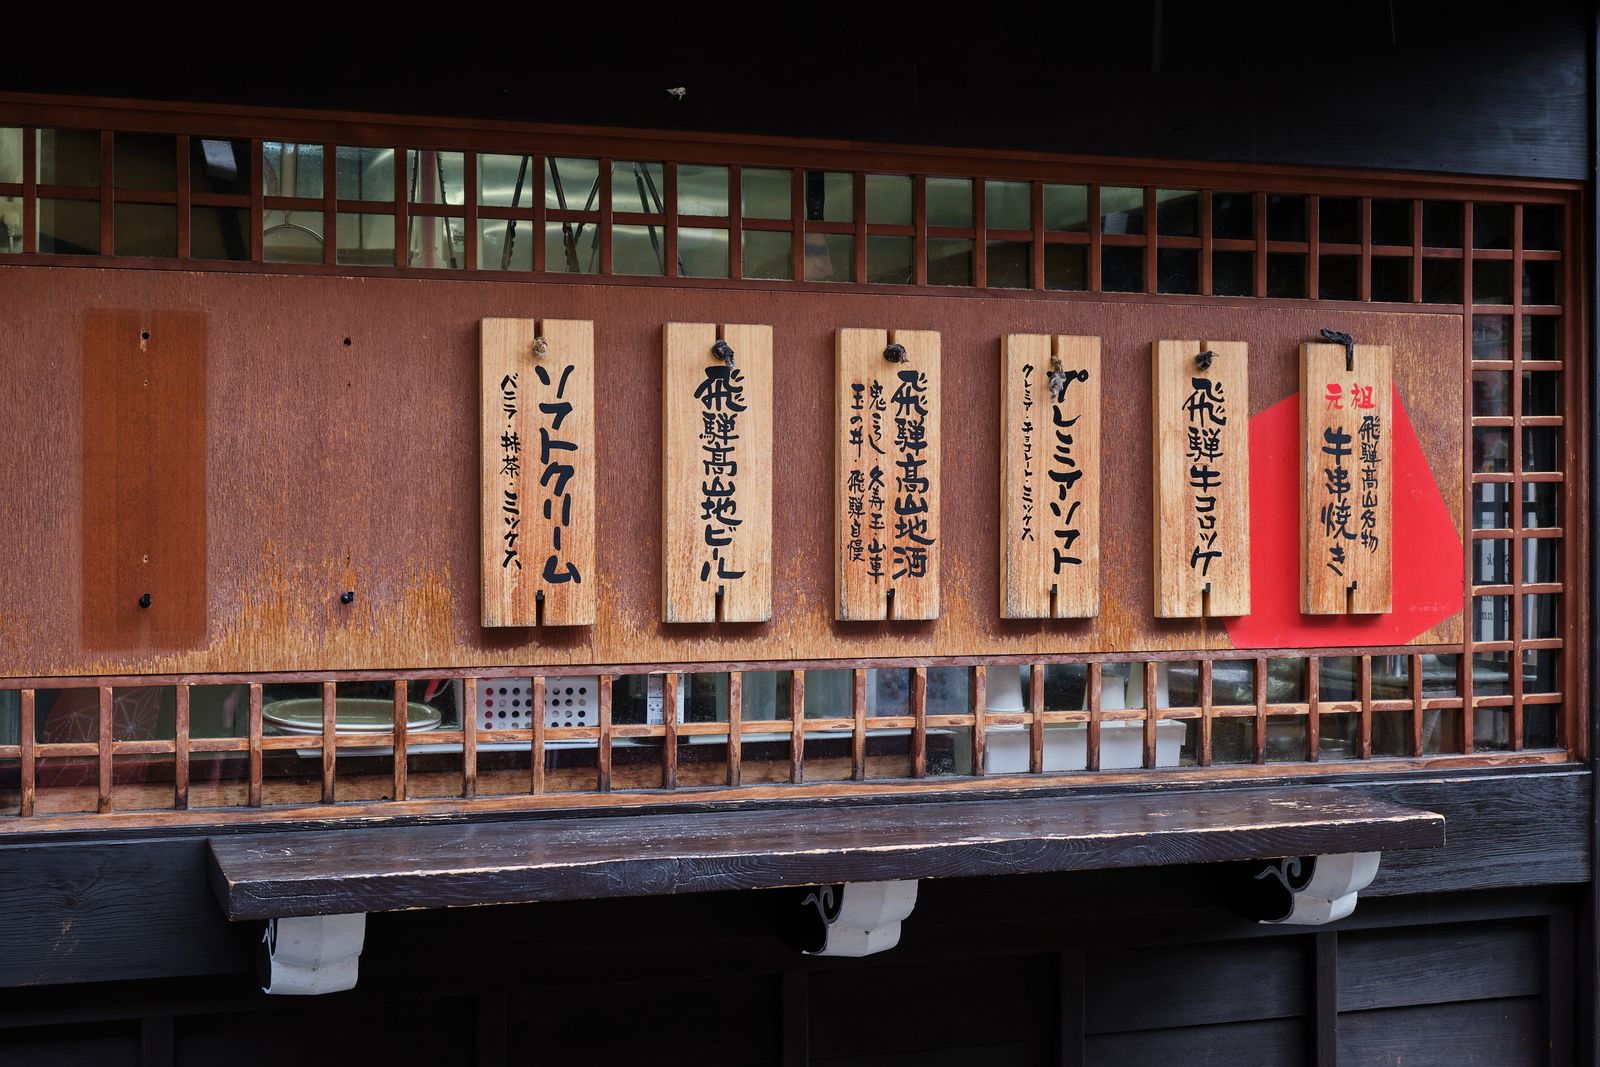 元祖
飛騨高山名物
牛串焼き
飛騨牛コロッケ
プレミアソフト
クレミア・チョコレート・ミックス
飛騨高山地酒
鬼ころし・久寿玉・山車
玉の井・飛騨自慢
飛騨高山地ビール
ソフトクリーム
バニラ・抹茶・ミックス